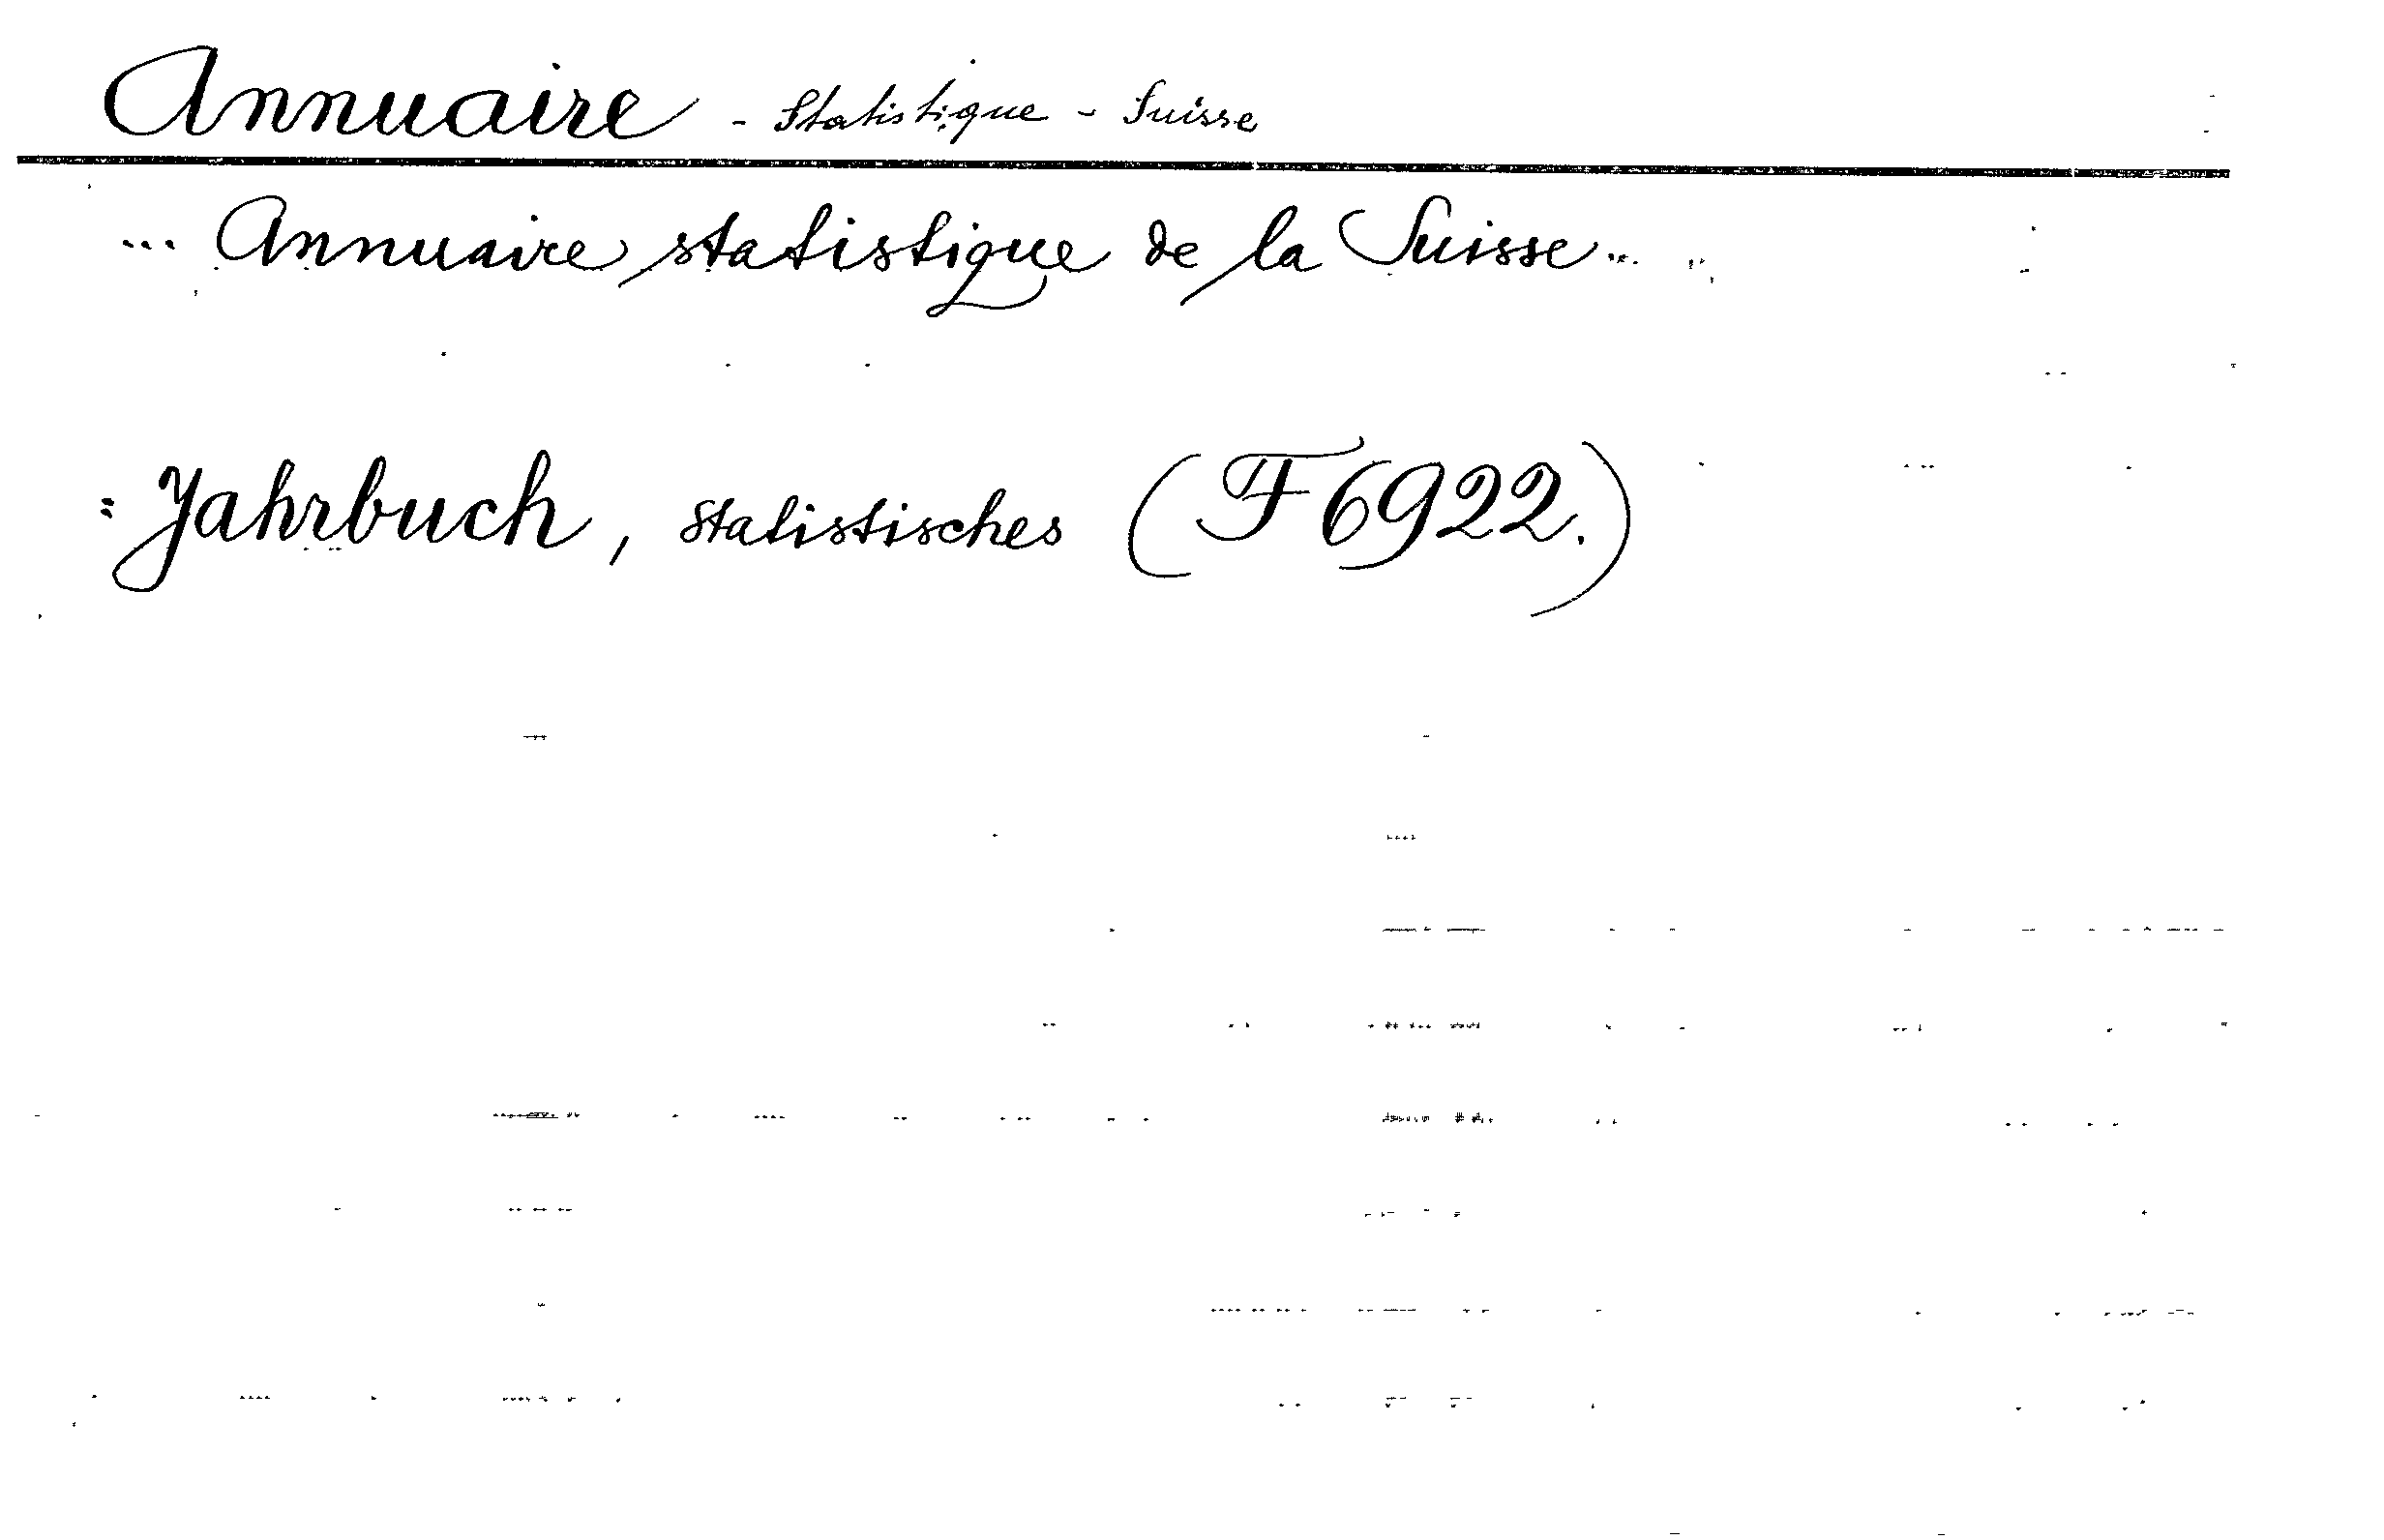 Annuaire - Statistique - Suisse
... Annuaire statistique de la Suisse...
= Jahrbuch, statistisches (F 6922.)